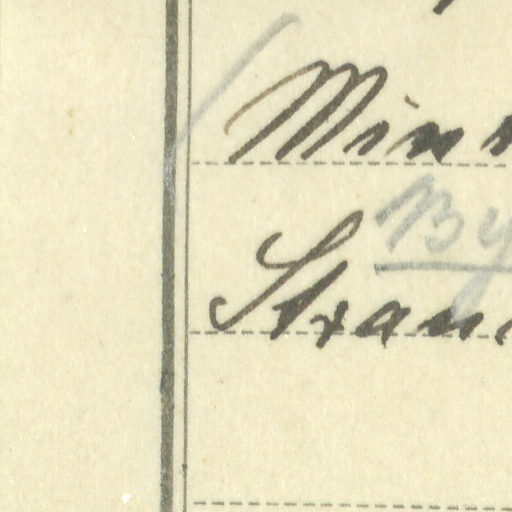 Min
By
Stran